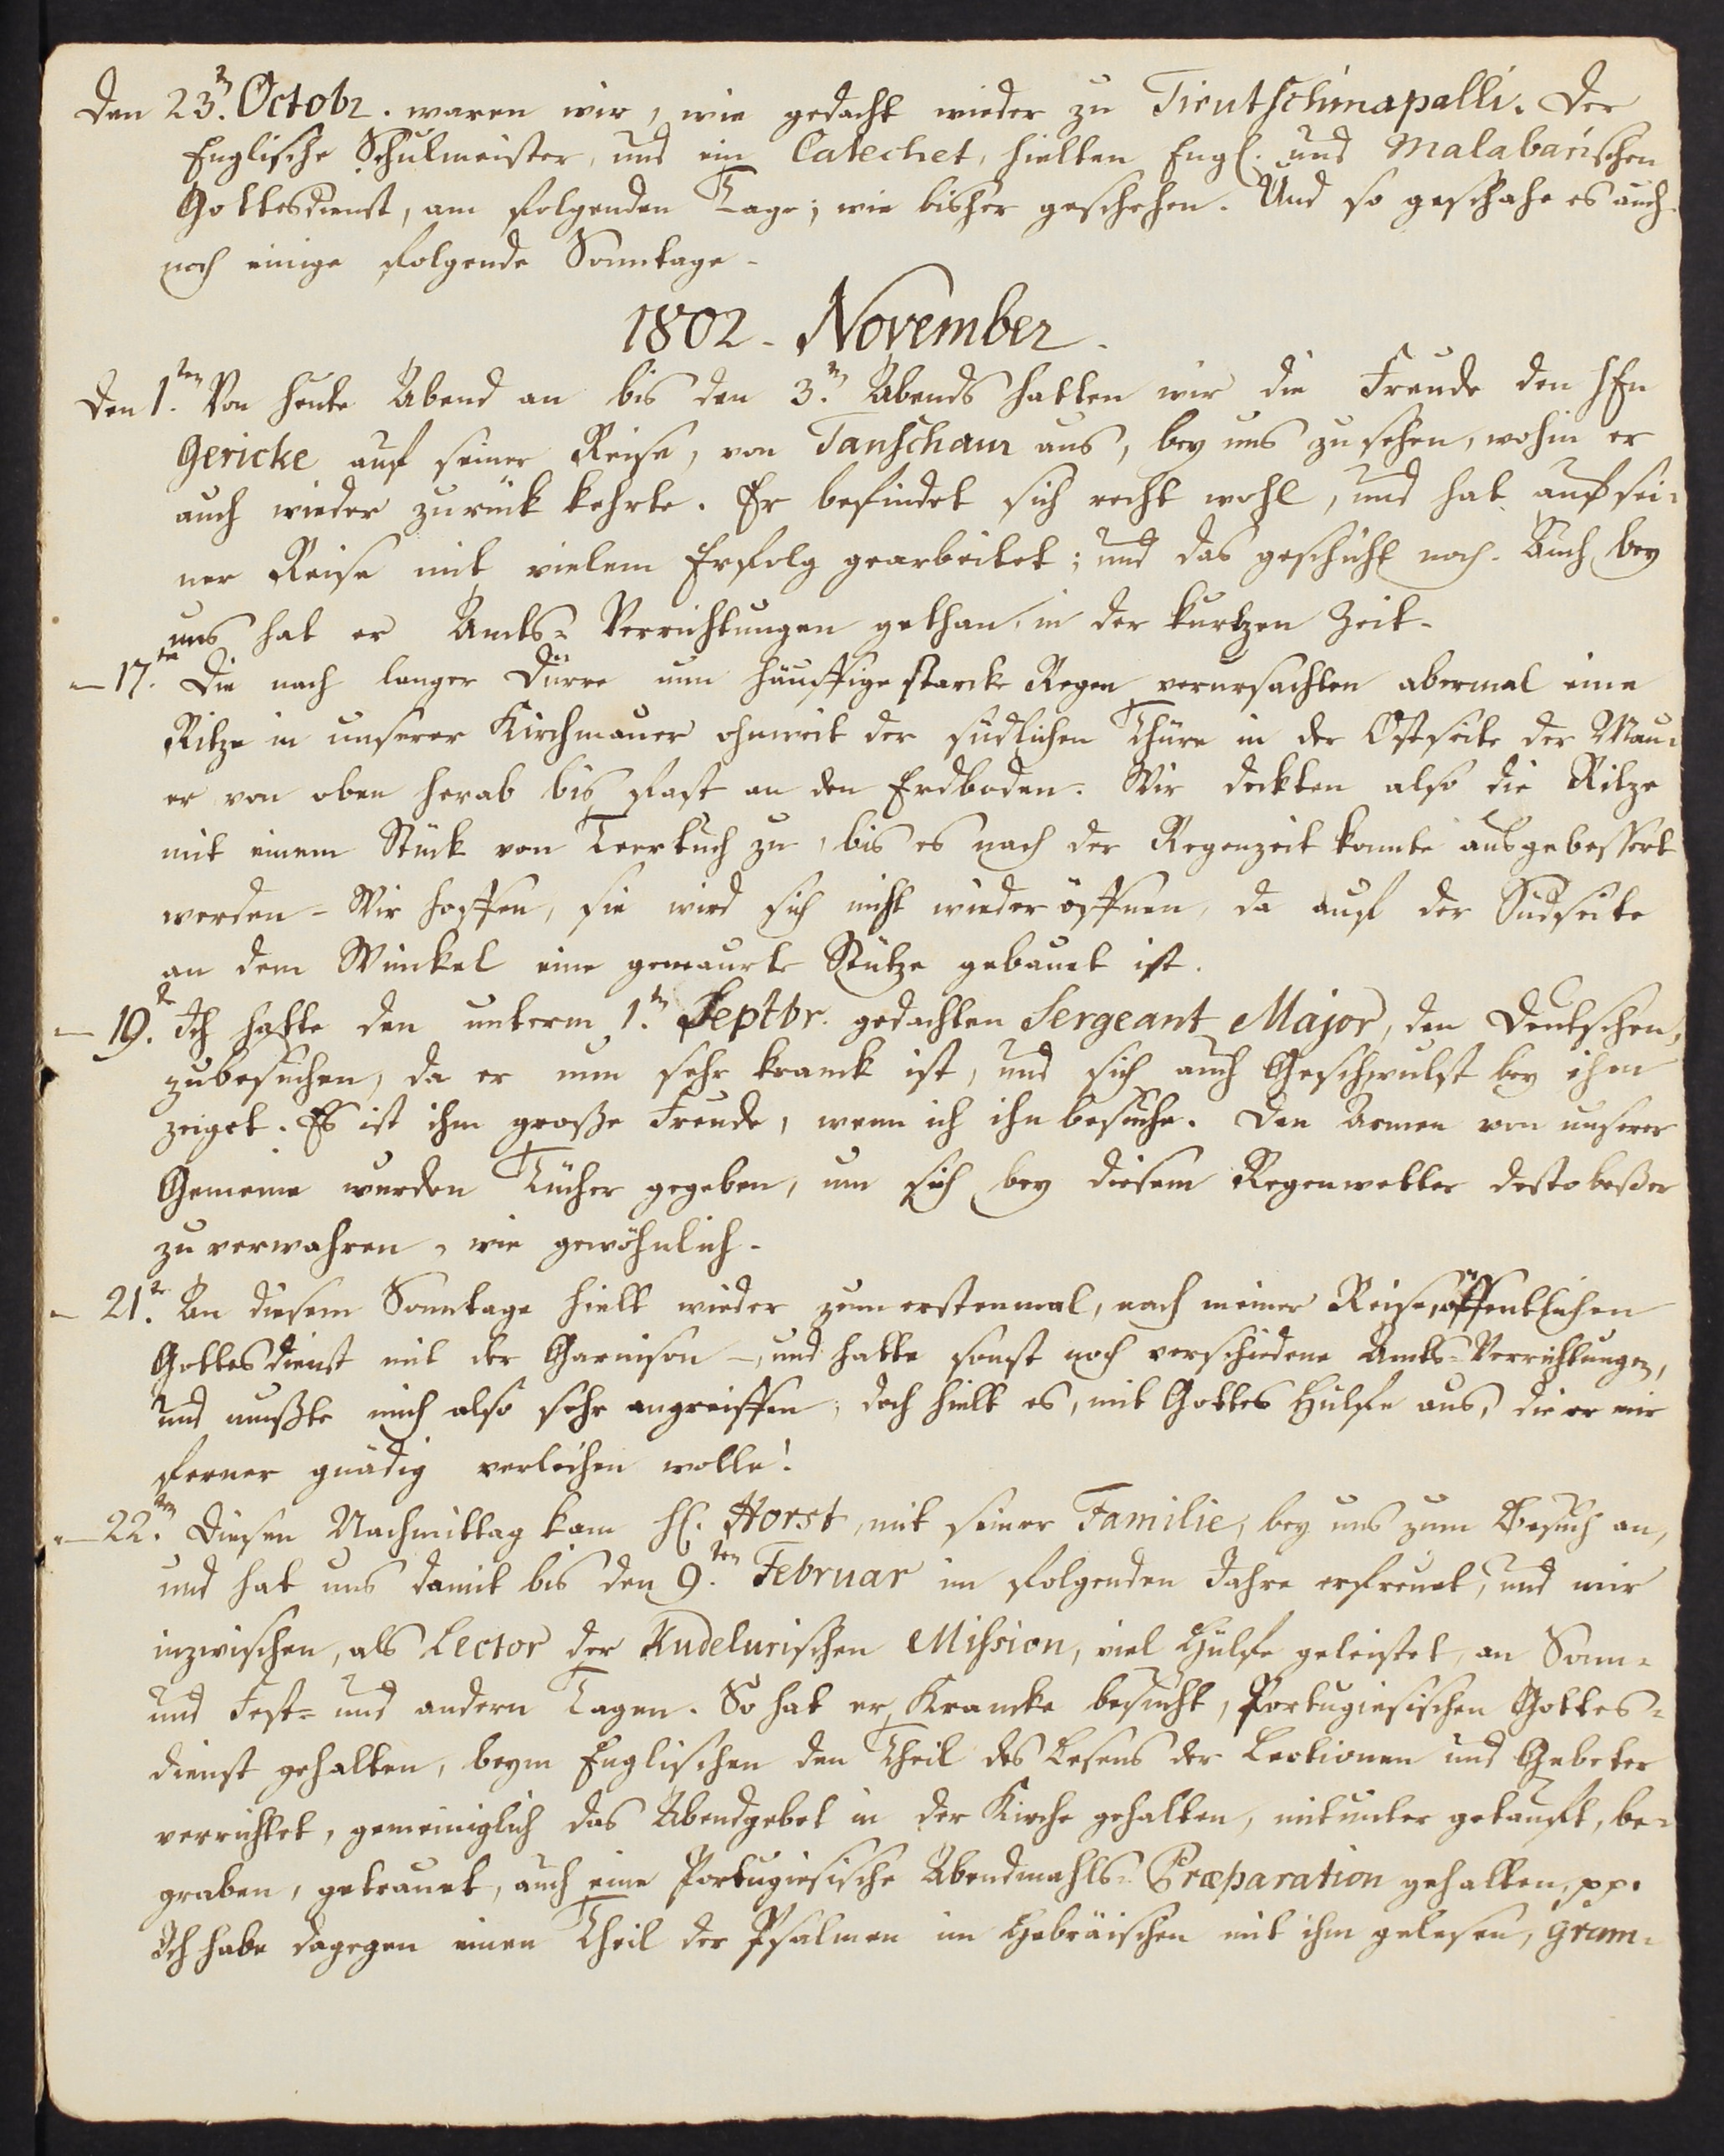 Den 23.n Octobr. waren wir, wie gedacht wieder zu Tirutschinapalli. Der
Englische Schulmeister, und ein Catechet, hielten Engl. und Malabarischen
Gottesdienst, am folgenden Tage; wie bisher geschehen. Und so geschahe es auch
noch einige folgende Sonntage.
1802. November.
Den 1.ten Von heute Abend an bis den 3.n Abends hatten wir die Freude den HEn
Gericke auf seiner Reise, von Tanschaur aus, bey uns zu sehen, wohin er
auch wieder zurück kehrte. Er befindet sich recht wohl, und hat auf sei-
ner Reise mit vielem Erfolg gearbeitet; und das geschieht noch. Auch bey
uns hat er Amts-Verrichtungen gethan, in der kurtzen Zeit.
— 17.te Die nach langer Dürre nun häuffige starcke Regen verursachten abermal eine
Ritze in unserer Kirchmauer ohnweit der südlichen Thüre in der Ostseite der Mau-
er von oben herab bis fast an den Erdboden. Wir deckten also die Ritze
mit einem Stück von Teertuch zu, bis es nach der Regenzeit konnte ausgebessert
werden. Wir hoffen, sie wird sich nicht wieder öffnen, da auf der Südseite
an dem Winckel eine gemaurte Stütze gebauet ist.
— 19.te Ich hatte den unterm 1.ten Septbr. gedachten Sergeant Major, den Deutschen,
zubesuchen, da er nun sehr kranck ist, und sich auch Geschwulst bey ihm
zeiget. Es ist ihm große Freude, wenn ich ihn besuche. Den Armen von unserer
Gemeine wurden Tücher gegeben, um sich bey diesem Regenwetter desto beßer
zu verwahren, wie gewöhnlich.
— 21.te An diesem Sonntage hielt wieder zum erstenmal, nach meiner Reise, öffentlichen
Gottesdienst mit der Garnison —, und hatte sonst noch verschiedene Amts-Verrichtungen,
und mußte mich also sehr angreiffen; doch hielt es, mit Gottes Hülfe aus, die er mir
ferner gnädig verleihen wolle!
— 22.ten Diesen Nachmittag kam H. Horst, mit seiner Familie, bey uns zum Besuch an,
und hat uns damit bis den 9.ten Februar im folgenden Jahre erfreuet, und mir
inzwischen, als Lector der Kudelurischen Mission, viel Hülfe geleistet, an Sonn-
und Fest- und andern Tagen. So hat er Krancke besucht, Portugiesischen Gottes-
dienst gehalten, beym Englischen den Theil des Lesens der Lectionen und Gebeter
verrichtet, gemeiniglich das Abendgebet in der Kirche gehalten, mitunter getauft, be-
graben, getrauet, auch eine Portugiesische Abendmahls-Præparation gehalten, pp.
Ich habe dagegen einen Theil der Psalmen im Hebräischen mit ihm gelesen, Gram-